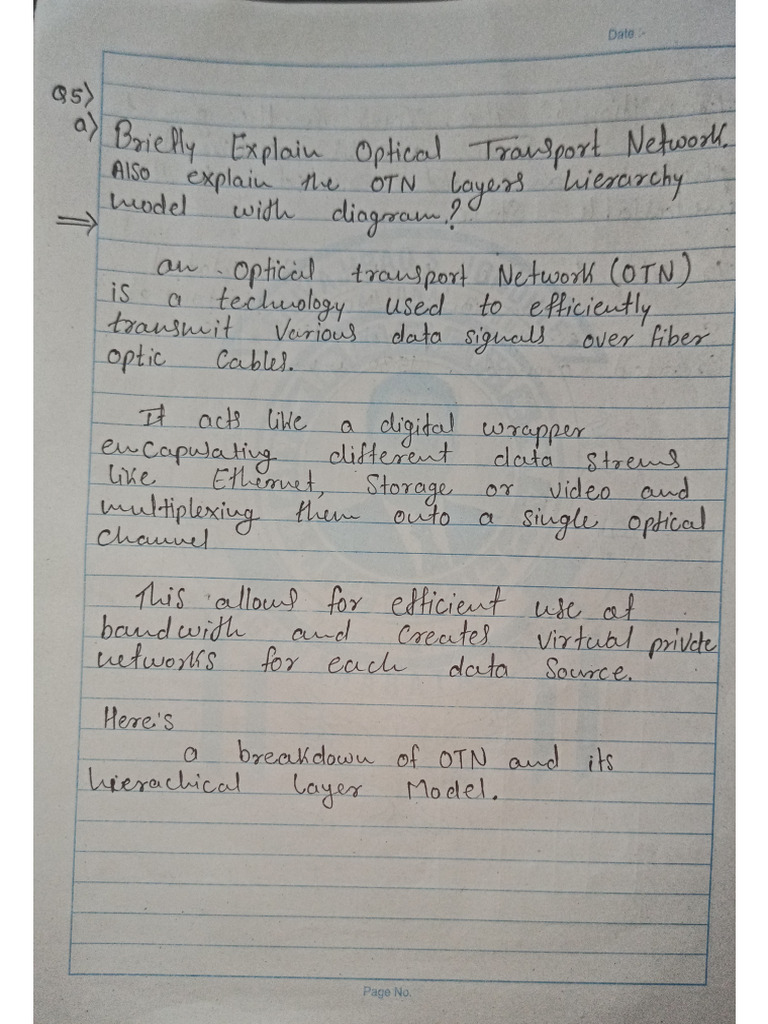 Date :-
Q5)
a) Briefly Explain Optical Transport Network.
Also explain the OTN layers hierarchy
model with diagram?
⇒
an optical transport Network (OTN)
is a technology used to efficiently
transmit various data signals over fiber
optic cables.
It acts like a digital wrapper
encapulating different data strems
like Ethernet, Storage or video and
multiplexing them onto a single optical
channel
This allows for efficient use of
bandwith and creates virtual private
networks for each data source.
Here's
a breakdown of OTN and its
hierachical layer Model.
Page No.